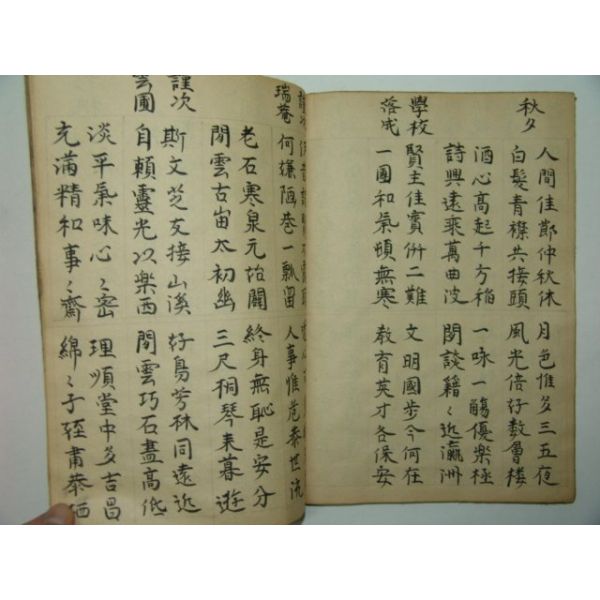 秋夕
人間佳節仲秋休 月色惟多三五夜
白髮青襟共接頭 風光倍好數層樓
酒心高起千方稲 一咏一觴優樂極
詩興遠乘萬曲波 閒談籍々近瀛洲
學校
落成
賢主佳賓併二難 文明國步今何在
一團和氣頓無寒 教育英才各保安
瑞菴 何嫌陋巷一瓢留 人事惟危泰世流
老石寒泉元始闢 終身無恥是安分
閒雲古宙太初幽 三尺桐琴来暮遊
謹次
雲圃
斯文芝友接山溪 好鳥芳林同遠近
自賴靈光以樂西 閒雲巧石盡高低
淡平氣味心々密 理順堂中多吉昌
充滿精和事々齋 綿々子姪肅恭栖